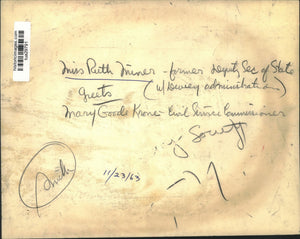 Miss Ruth Miner - former Deputy Sec of State
(w/ Dewey administration)
greets
Mary Goode Krone - Civil Service Commissioner
11/23/63